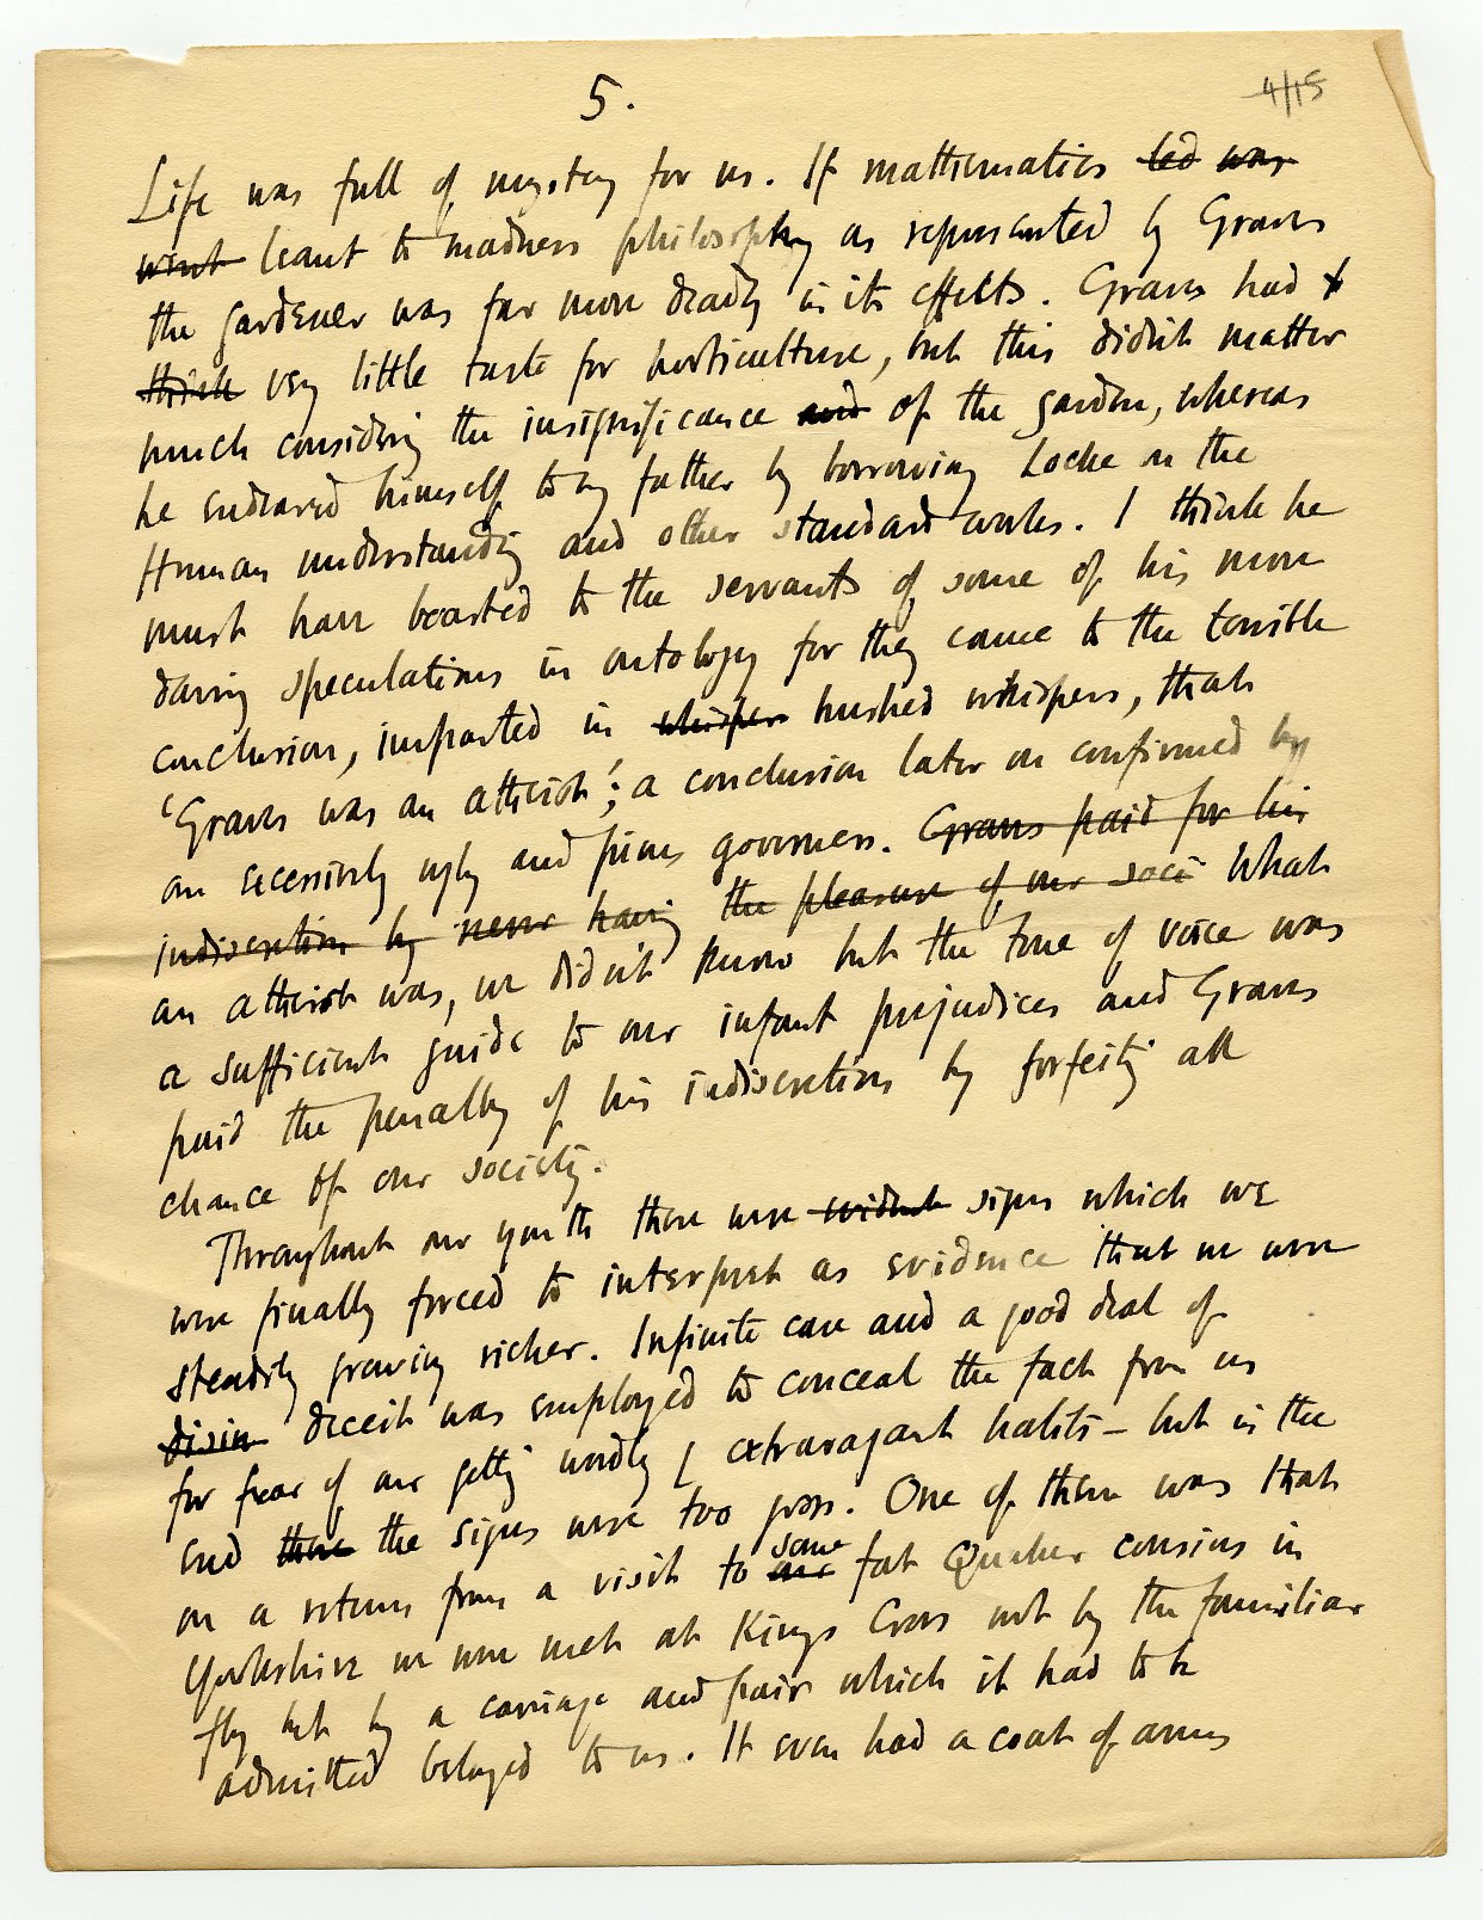 5.
4/15
Life was full of mystery for us. If mathematics led was
went leant to madness philosophy as represented by Graves
the gardener was far more deadly in its effects. Graves had
think very little taste for horticulture, but this didn't matter
much considering the insignificance and of the garden, whereas
he endeared himself to my father by borrowing Locke on the
Human understanding and other standard works. I think he
must have boasted to the servants of some of his more
daring speculations in ontology for they came to the terrible
conclusion, imparted in whispers hushed whispers, that
'Graves was an atheist'; a conclusion later on confirmed by
an excessively ugly and pious governess. Graves paid for his
indiscretion by never having the pleasure of our soci What
an atheist was, we didn't know but the tone of voice was
a sufficient guide to our infant prejudices and Graves
paid the penalty of his indiscretions by forfeitg all
chance of our society.
Throughout our youth there were evident signs which we
were finally forced to interpret as evidence that we were
steadily growing richer. Infinite care and a good deal of
disin deceit was employed to conceal the fact from us
for fear of our gettg wordly / extravagant habits – but in the
end there the signs were too gross. One of them was that
on a return from a visit to our some fat Quaker cousins in
Yorkshire we were met at Kings Cross not by the familiar
fly but by a carriage and pair which it had to be
admitted belonged to us. It even had a coat of arms